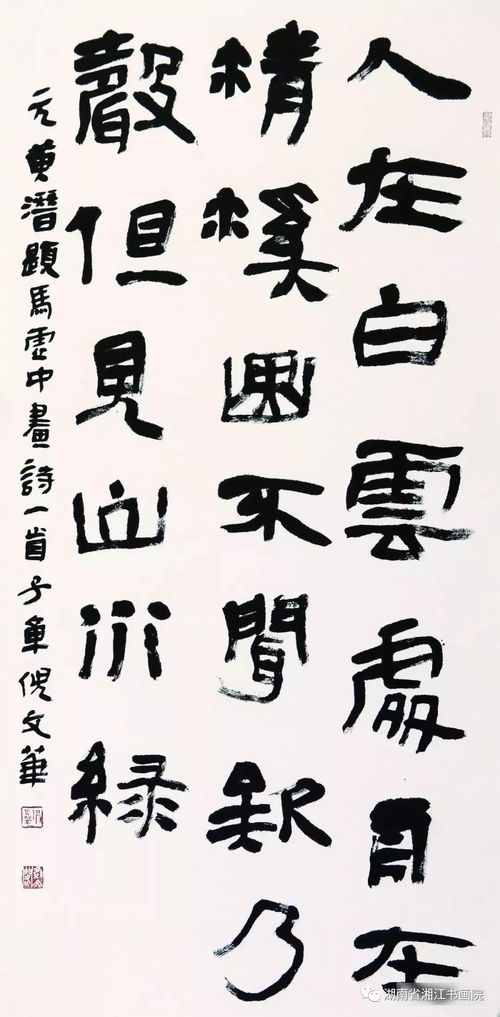 人在白雲處舟在
清溪曲不聞欸乃
聲但見山水綠
元黄潛題馬虛中畫詩一首子章倪文華
湖南省湘江书画院